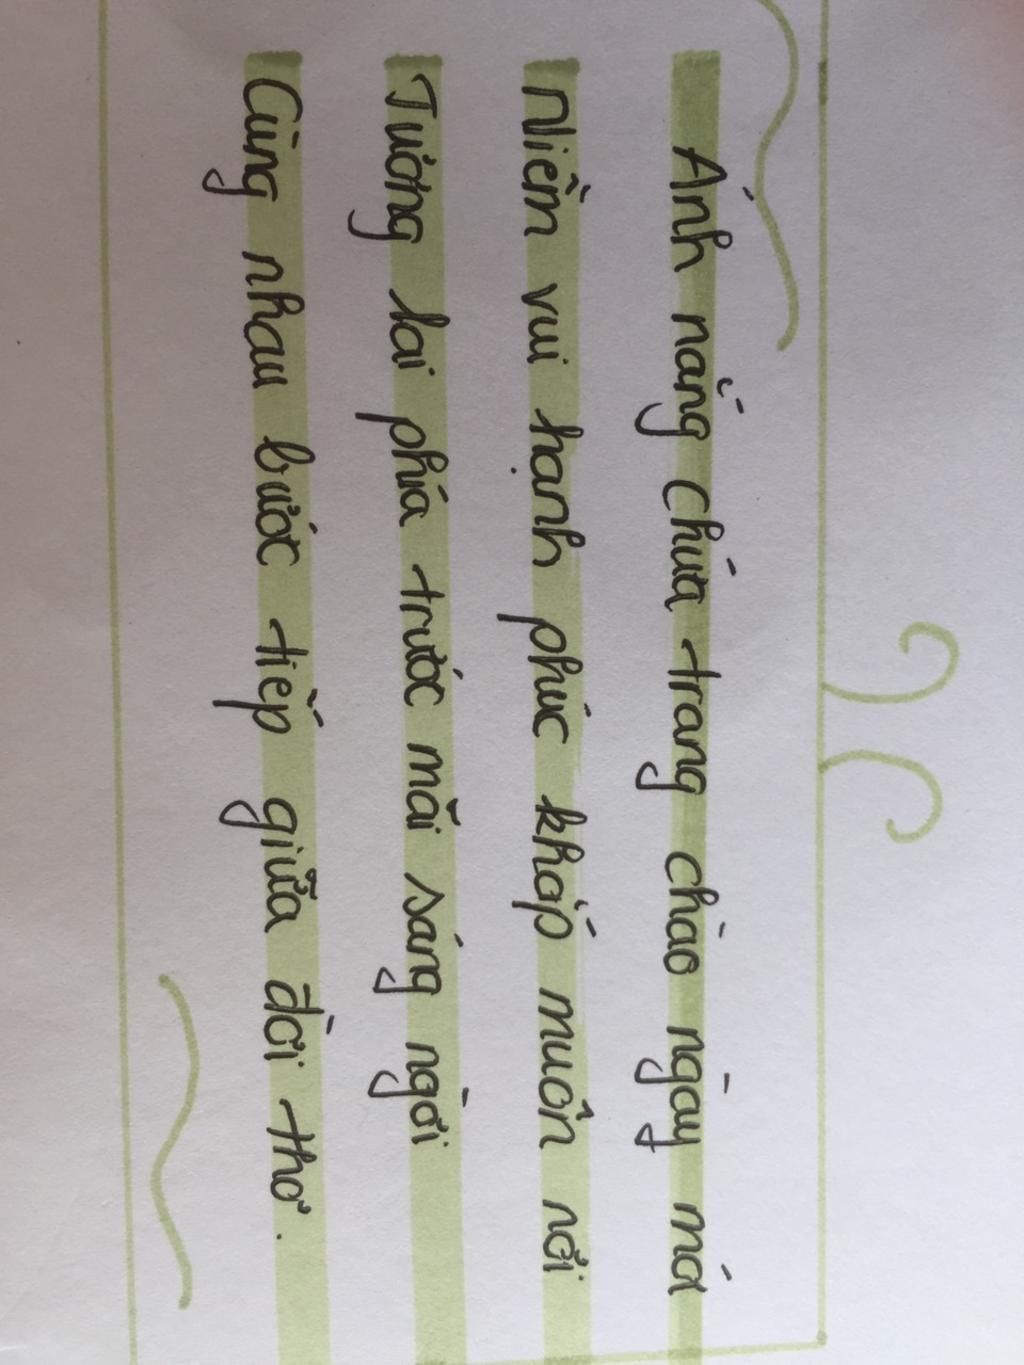 Ánh nắng chứa trang chào ngày mới
Niềm vui hạnh phúc khắp muôn nơi
Tương lai phía trước mãi sáng ngời
Cùng nhau bước tiếp giữa đời thơ.